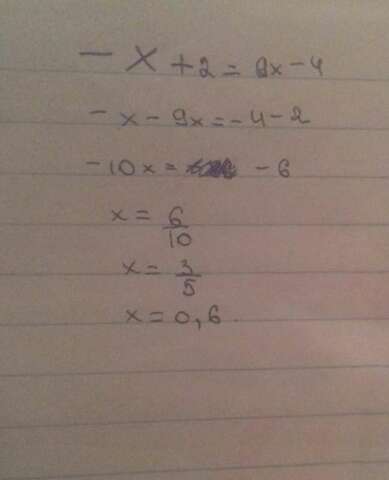 - x + 2 = 9x - 4
- x - 9x = - 4 - 2
- 10x = - 6
x = 6/10
x = 3/5
x = 0,6